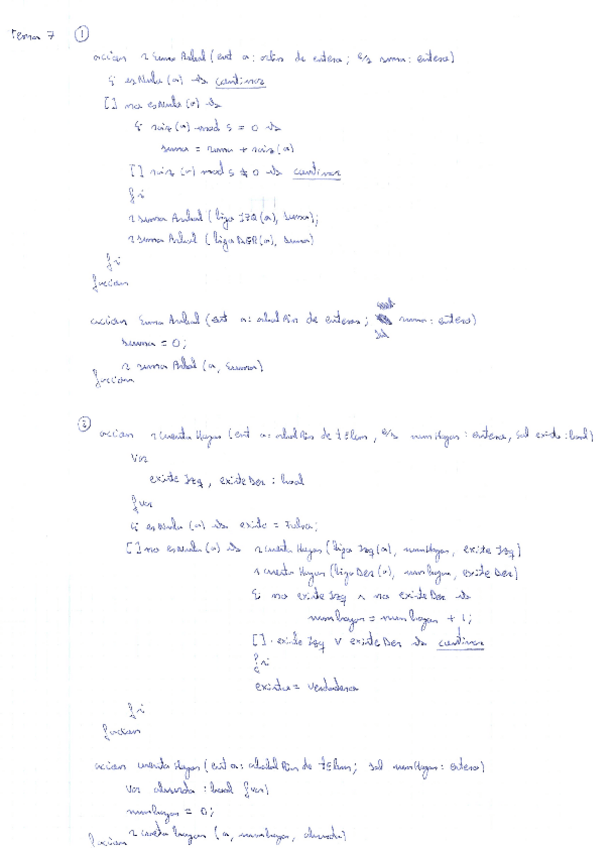 Tema 7 ①
accion rSumaArbol (ent a: arbin de enteros; e/s suma: entero)
si esNulo (a) → continuar
[] no esNulo (a) →
si raiz (a) mod 5 = 0 →
suma = suma + raiz (a)
[] raiz (a) mod 5 ≠ 0 → continuar
fsi
rSumaArbol (hijoIZQ (a), suma);
rSumaArbol (hijoDER (a), suma)
fsi
faccion
accion SumaArbol (ent a: arbolBin de enteros; sal suma: entero)
suma = 0;
rSumaArbol (a, suma)
faccion
②
accion rCuentaHojas (ent a: arbolBin de tElem, e/s numHojas: entero, sal existe: bool)
var
existeIzq, existeDer : bool
fvar
si esNulo (a) → existe = Falso;
[] no esNulo (a) → rCuentaHojas (hijoIzq (a), numHojas, existeIzq)
rCuentaHojas (hijoDer (a), numHojas, existeDer)
si no existeIzq ∧ no existeDer →
numHojas = numHojas + 1;
[] existeIzq ∨ existeDer → continuar
fsi
existe = verdadero
fsi
faccion
accion cuentaHojas (ent a: arbolBin de tElem; sal numHojas: entero)
var : bool fvar
numHojas = 0;
rCuentaHojas (a, numHojas,
faccion